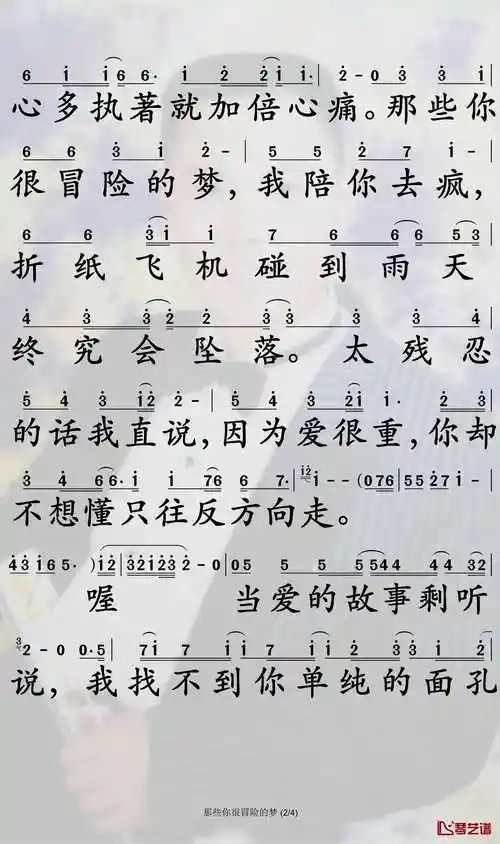 6 i i 6 6· i 2 2 i i· | 2 - 0 3 3 | i
心多执著就加倍心痛。那些你
6 6 3 i 2 - | 5 5 2 7 i - |
很冒险的梦，我陪你去疯，
6 6 3 i i 7 6 6 6 5 3 |
折纸飞机碰到雨天
4 3 3 2 2 3 3 3 3 4 |
终究会坠落。太残忍
5 4 3 i 2 2 - | 5 4 3 2 i i· | 2 3 |
的话我直说，因为爱很重，你却
3 4 6 6· 6 i i 7 6 6 7· | i 2 i - (0 7 6 | 5 5 2 7 i - |
不想懂只往反方向走。
4 3 i 6 5· ) i 2 | 3 2 i 2 3 2 - 0 | 0 5 5 5 5 5 4 4 4 4 3 2 |
喔 当爱的故事剩听
3 2 - 0 0·5 | 7 i 7 i 7 i i 2 3 3 i 2 |
说，我找不到你单纯的面孔
那些你很冒险的梦 (2/4)
琴艺谱